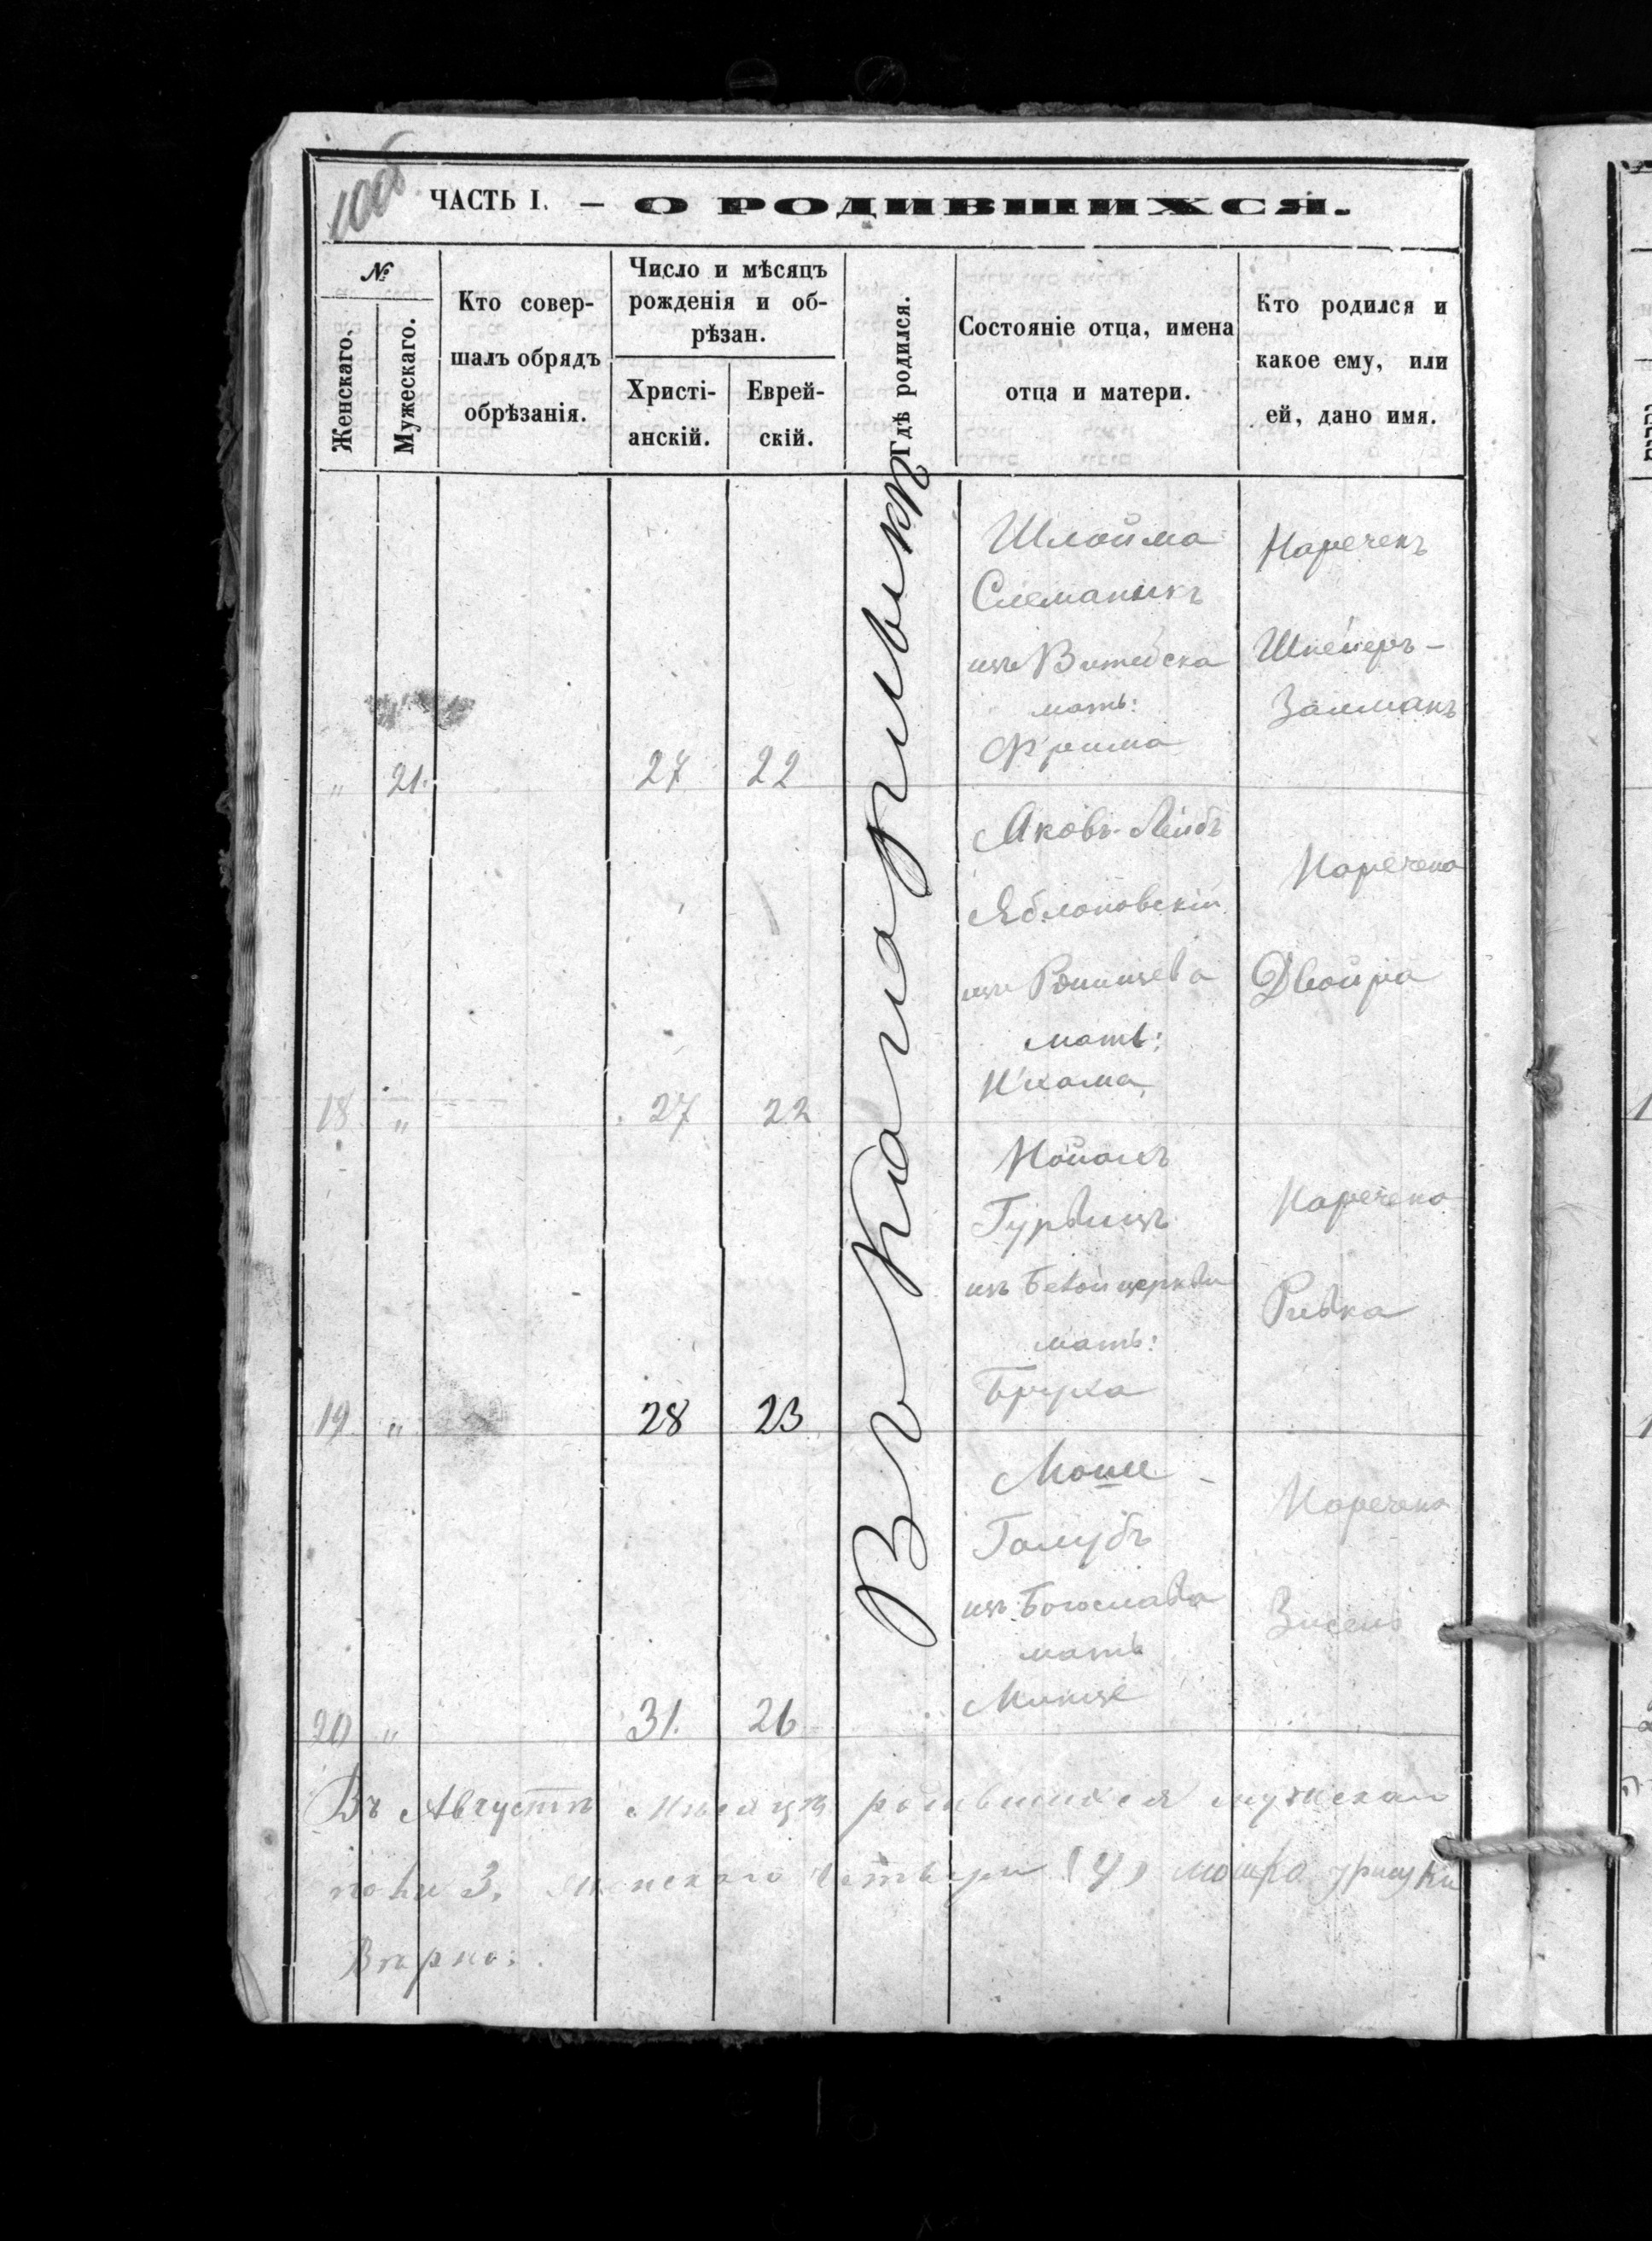 ЧАСТЬ I. – О РОДИВШИХСЯ.
№
Женскаго.
Мужескаго.
Кто совер-
шалъ обрядъ
обрѣзанія.
Число и мѣсяцъ
рожденія и об-
рѣзан.
Христі-
анскій.
Еврей-
скій.
Гдѣ родился.
Состояніе отца, имена
отца и матери.
Кто родился и
какое ему, или
ей, дано имя.
Въ Кагарлыкѣ
Шлойма
изъ Витебска
мать:
Фрима
Нареченъ
Шнеиеръ-
Залманъ
" 21. 27 22
Яковъ-Лейбъ
Яблоновскій
мать:
Нхама
Наречена
Двойра
18 " 27 22
Гурвицъ
изъ Белой церкви
мать:
Бруха
Наречена
Ривка
19 " 28 23
Моше
Голубъ
изъ Богослава
мать
Минце
Наречена
20 " 31. 26
Въ Августѣ мѣсяцѣ родившихся мужскаго
пола 3, женскаго четыри (4)
Вѣрно: